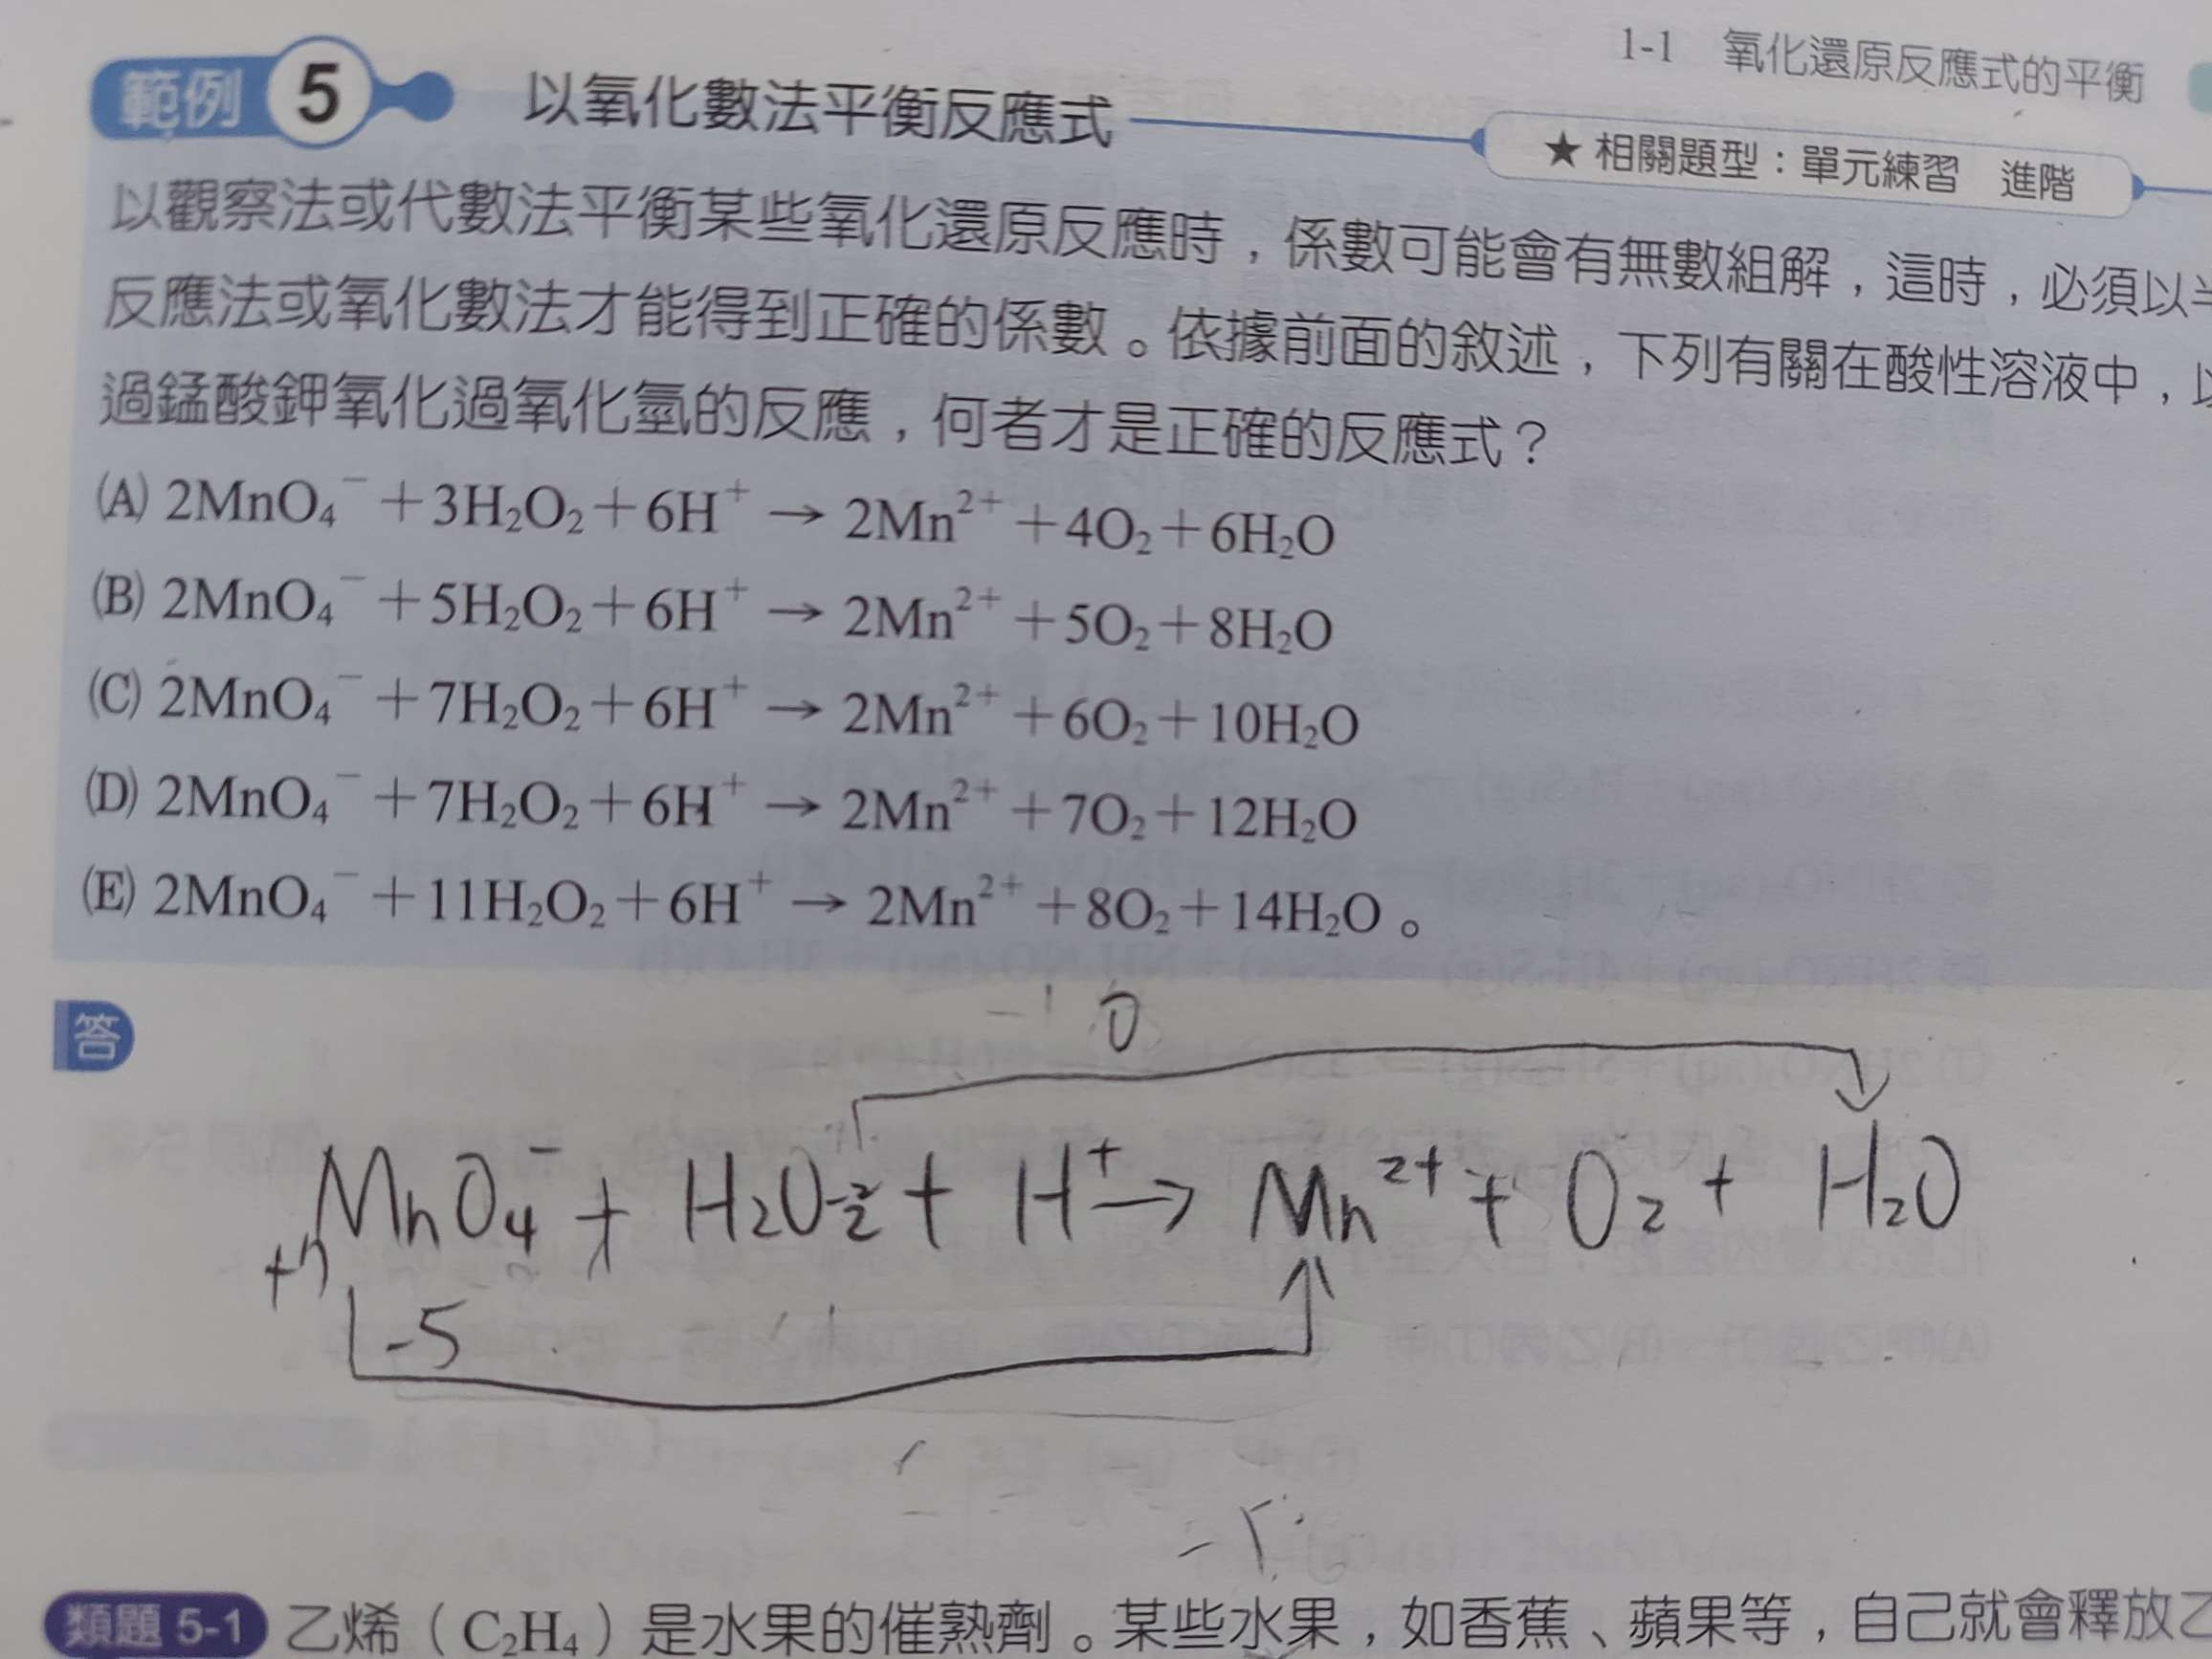 1-1 氧化還原反應式的平衡
範例 5 以氧化數法平衡反應式
★相關題型：單元練習 進階
以觀察法或代數法平衡某些氧化還原反應時，係數可能會有無數組解，這時，必須以
反應法或氧化數法才能得到正確的係數。依據前面的敘述，下列有關在酸性溶液中，
過錳酸鉀氧化過氧化氫的反應，何者才是正確的反應式？
(A) 2MnO₄⁻＋3H₂O₂＋6H⁺ → 2Mn²⁺＋4O₂＋6H₂O
(B) 2MnO₄⁻＋5H₂O₂＋6H⁺ → 2Mn²⁺＋5O₂＋8H₂O
(C) 2MnO₄⁻＋7H₂O₂＋6H⁺ → 2Mn²⁺＋6O₂＋10H₂O
(D) 2MnO₄⁻＋7H₂O₂＋6H⁺ → 2Mn²⁺＋7O₂＋12H₂O
(E) 2MnO₄⁻＋11H₂O₂＋6H⁺ → 2Mn²⁺＋8O₂＋14H₂O。
答
0
MnO₄⁻ + H₂O₂ + H⁺ → Mn²⁺ + O₂ + H₂O
-5
類題 5-1 乙烯（C₂H₄）是水果的催熟劑。某些水果，如香蕉、蘋果等，自己就會釋放